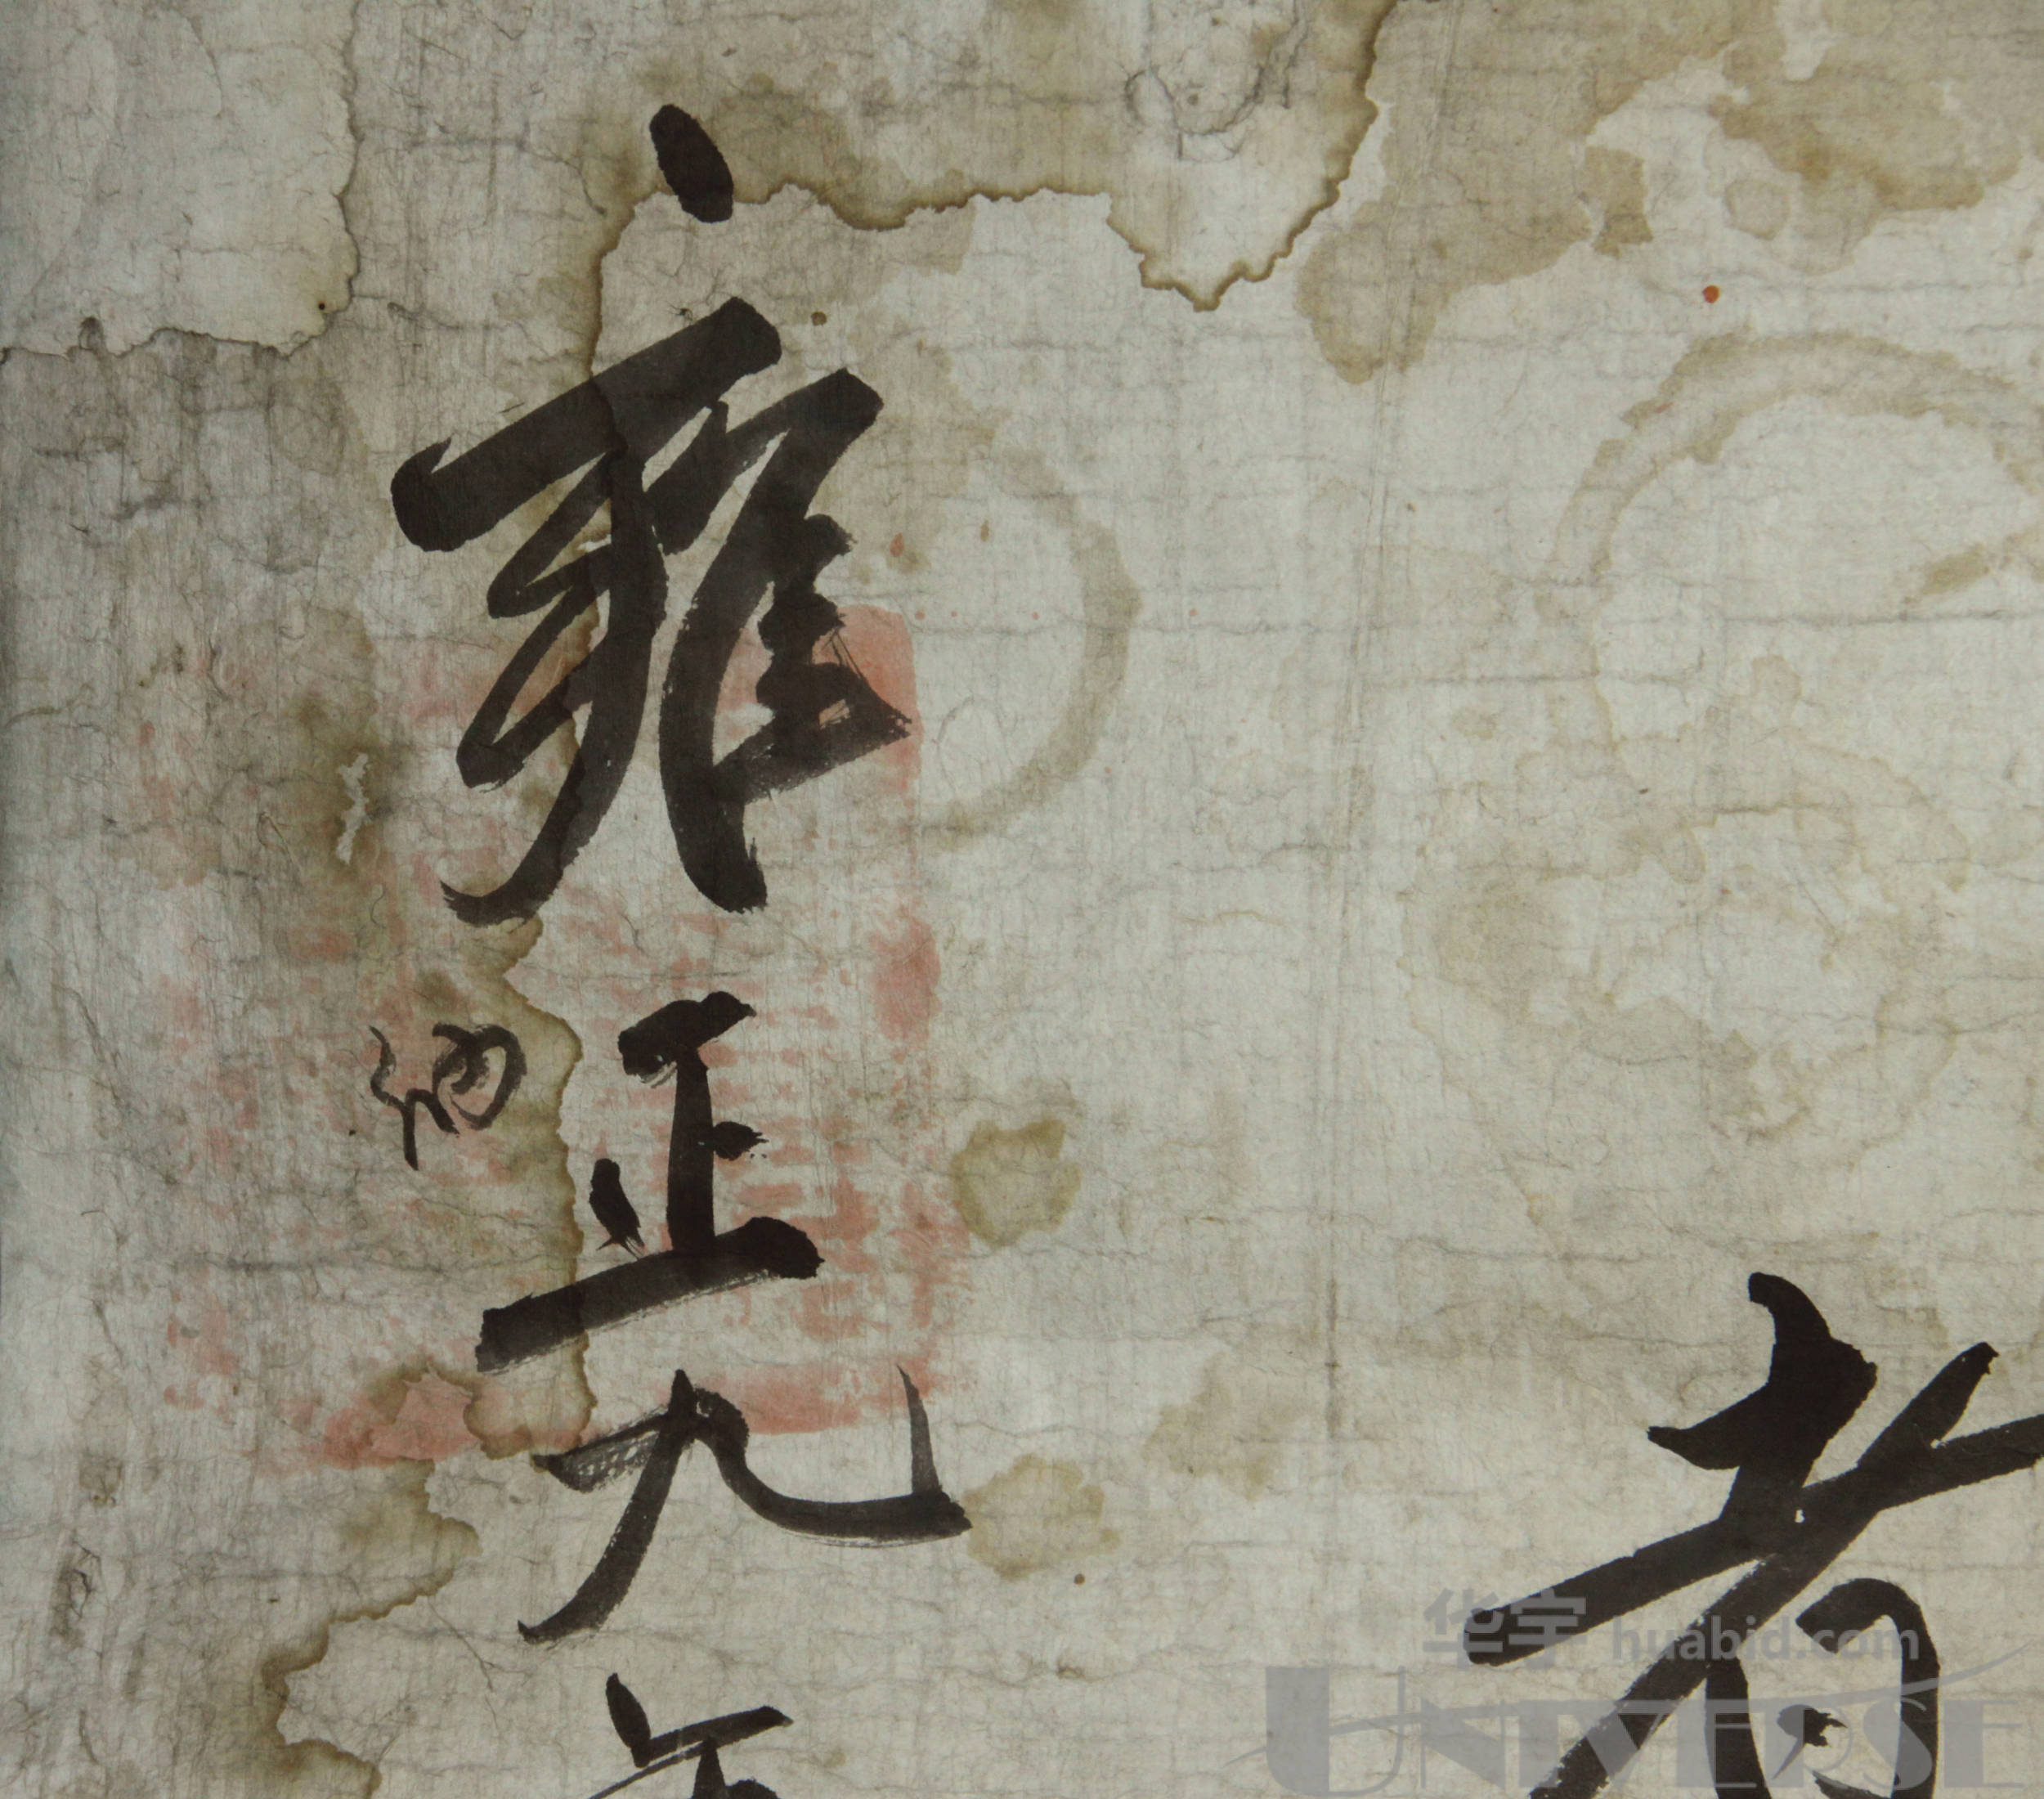 者
雍正九年
华宇 huabid.com
UNIVERSE